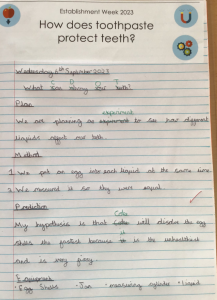 Establishment Week 2023
How does toothpaste
protect teeth?
Wednesday 6th September 2023
What can decay our teeth?
Plan
experiment
We are planning an experiment to see how different
liquids affect our teeth.
Method
1. We put an egg into each liquid at the same time.
2. We measured it so they were equal.
Prediction
Coke
My hypothesis is that coke will dissolve the egg
shells the fastest because it is the unhealthiest
and is very fizzy.
Equipment
• Egg Shells • Jar • measuring cylinder • liquid